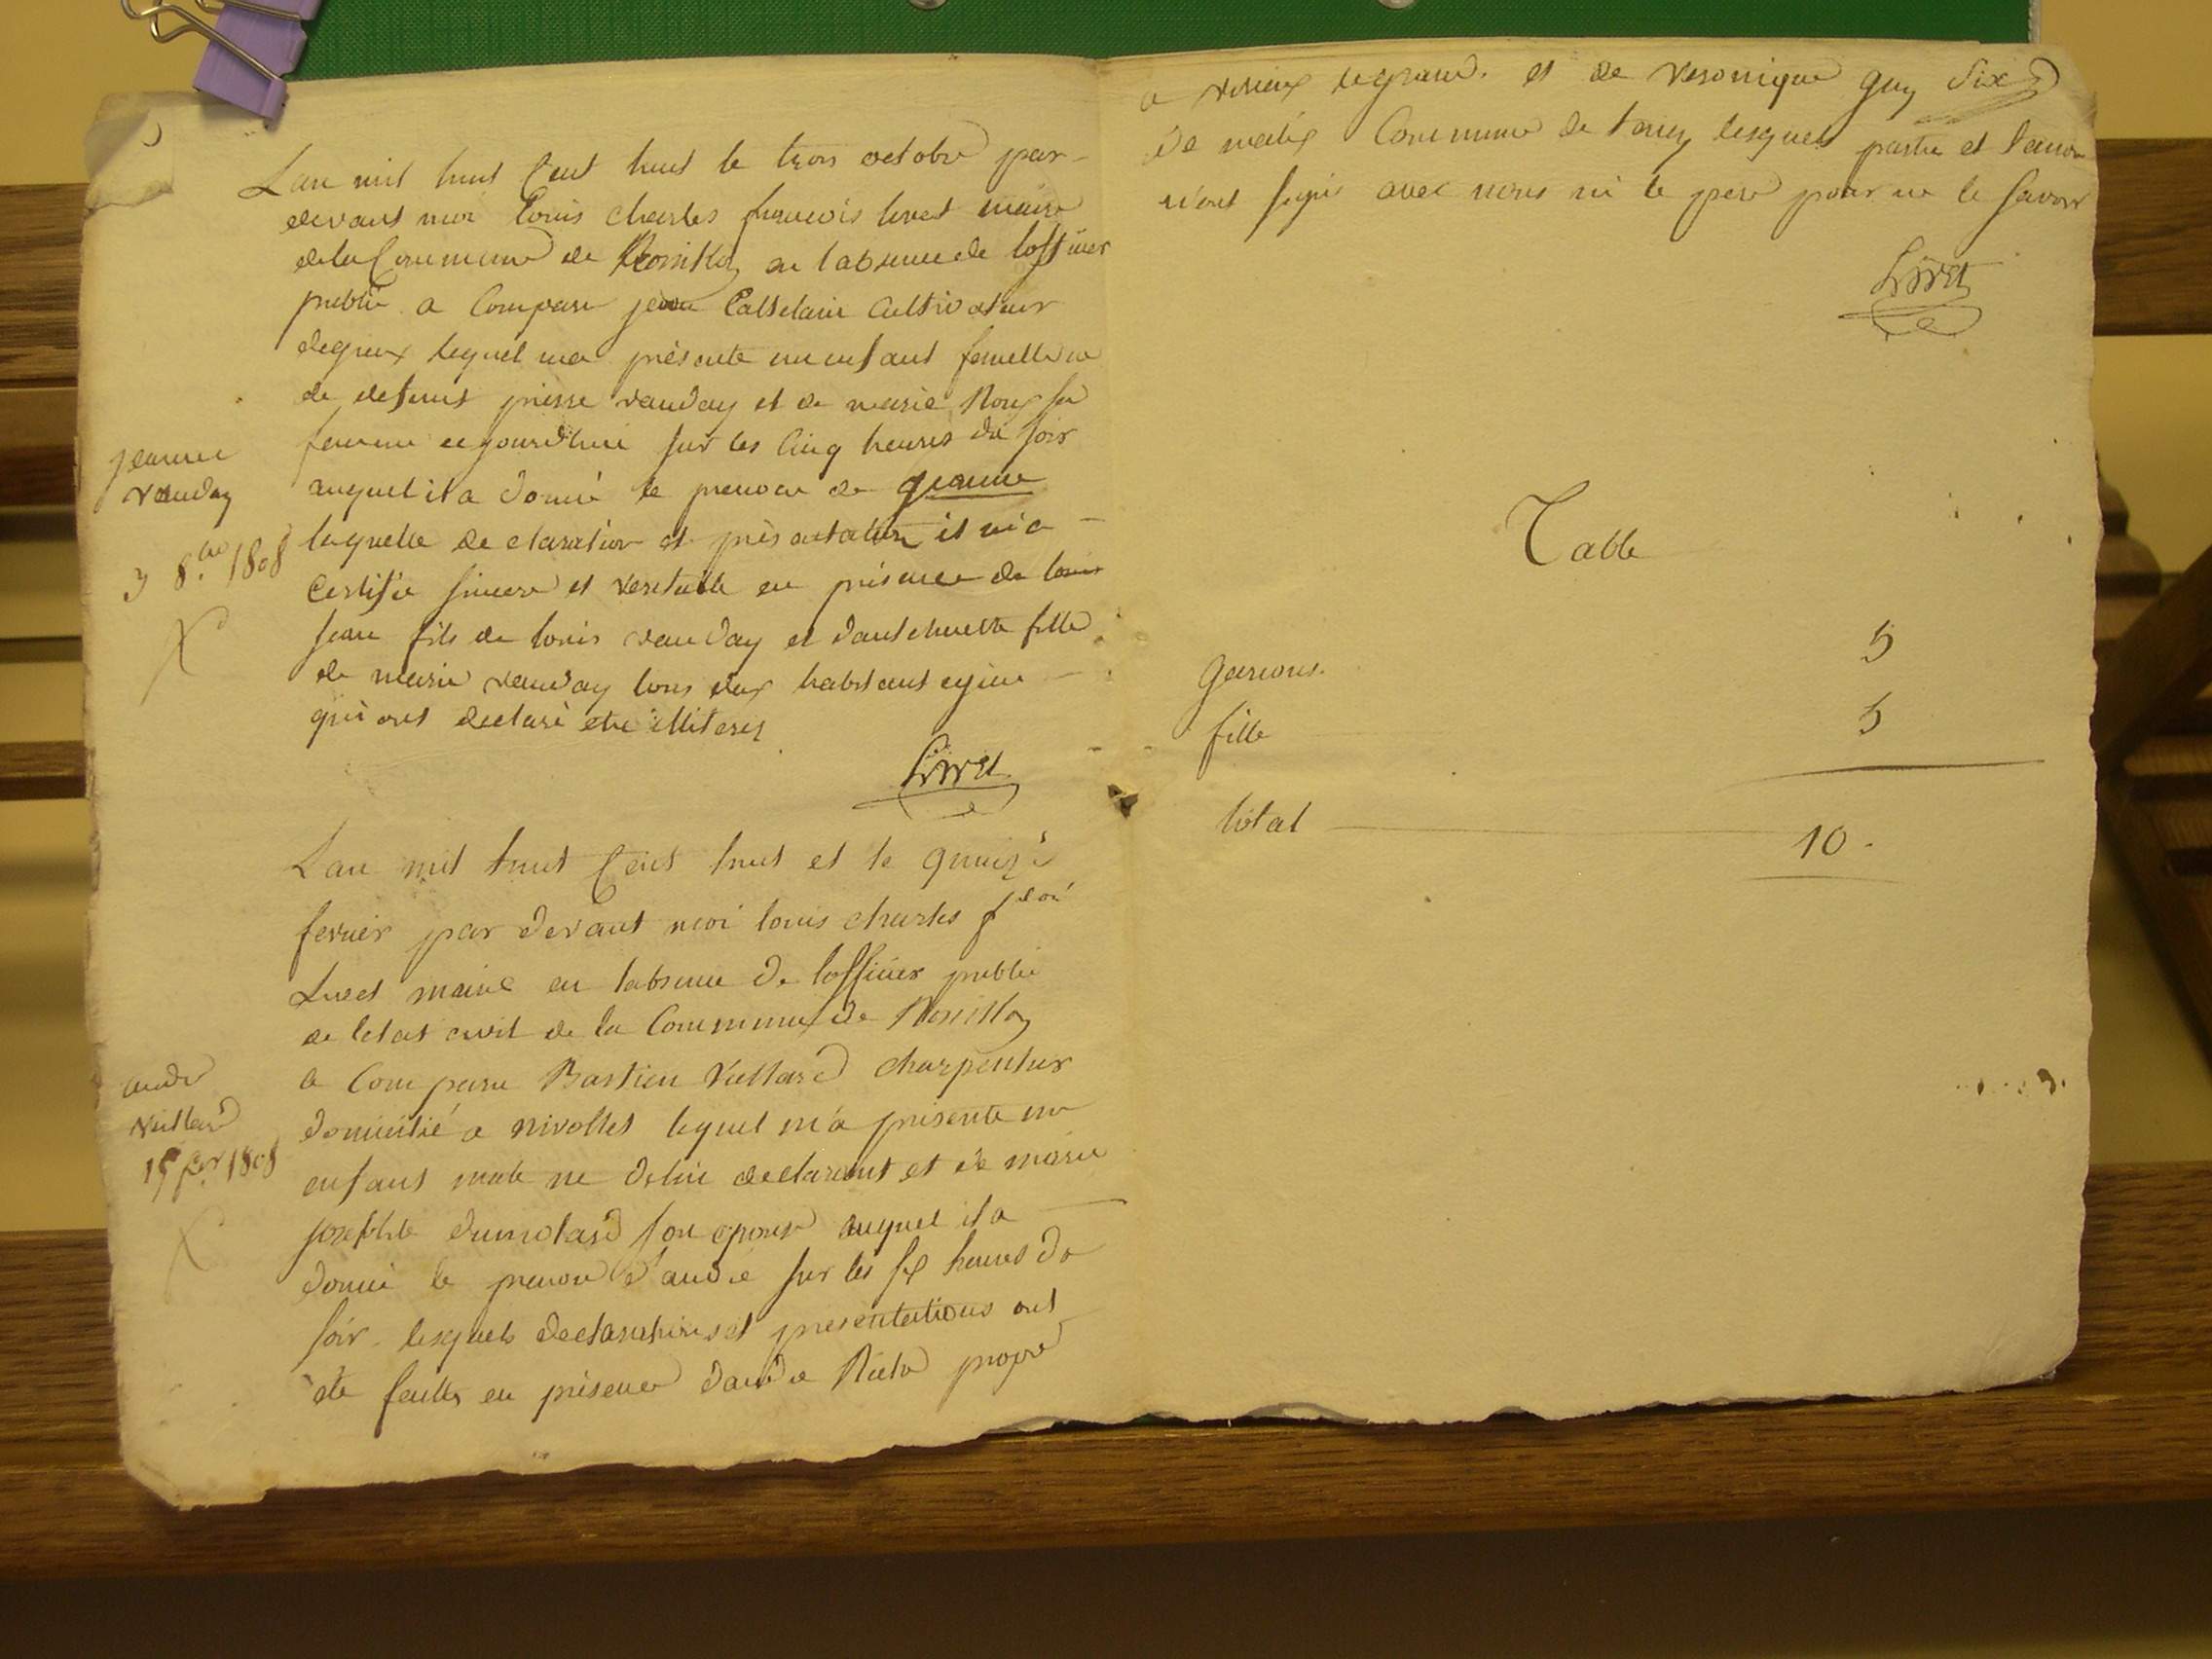 Lan mil huit Cent huit le trois octobre par-
devant moi Louis charles francois livet maire
de la Commune de en labsence de lofficier
public a Comparu jean Cultivateur
lequel ma présenté un enfant femelle ne
de defunt pierre vauday et de marie Roux sa
femme cejourdhui sur les Cinq heures du soir
auquel il a donné le prenom de jeanne
laquelle declaration et présentation il m'a
Certifié sincere et veritable en présence de louis
jean fils de louis vauday et fille
de marie vauday tous deux habitant
qui ont declaré etre illiteres
Livet
jeanne
vauday
3 8.bre 1808
X
Lan mil huit Cent huit et le quinze
fevrier par devant moi louis charles
Livet maire en labsence de lofficier public
de letat civil de la Commune de
a Comparu Bastien Vuillard charpentier
domicilié a nivolles lequel m'a présenté un
enfant male ne de lui declarant et de marie
josephte dumolard son epouse auquel il a
donné le prenom d'andré sur les six heures du
soir lesquels declarations et presentations ont
été faittes en présence propre
andre
Vuillard
15 fer 1808
X
a virieux legrand. et de veronique guy
de Commune de lesquels
n'ont signé avec nous ni le pere pour ne le savoir
Livet
Table
garcons. 5
fille 5
total 10.